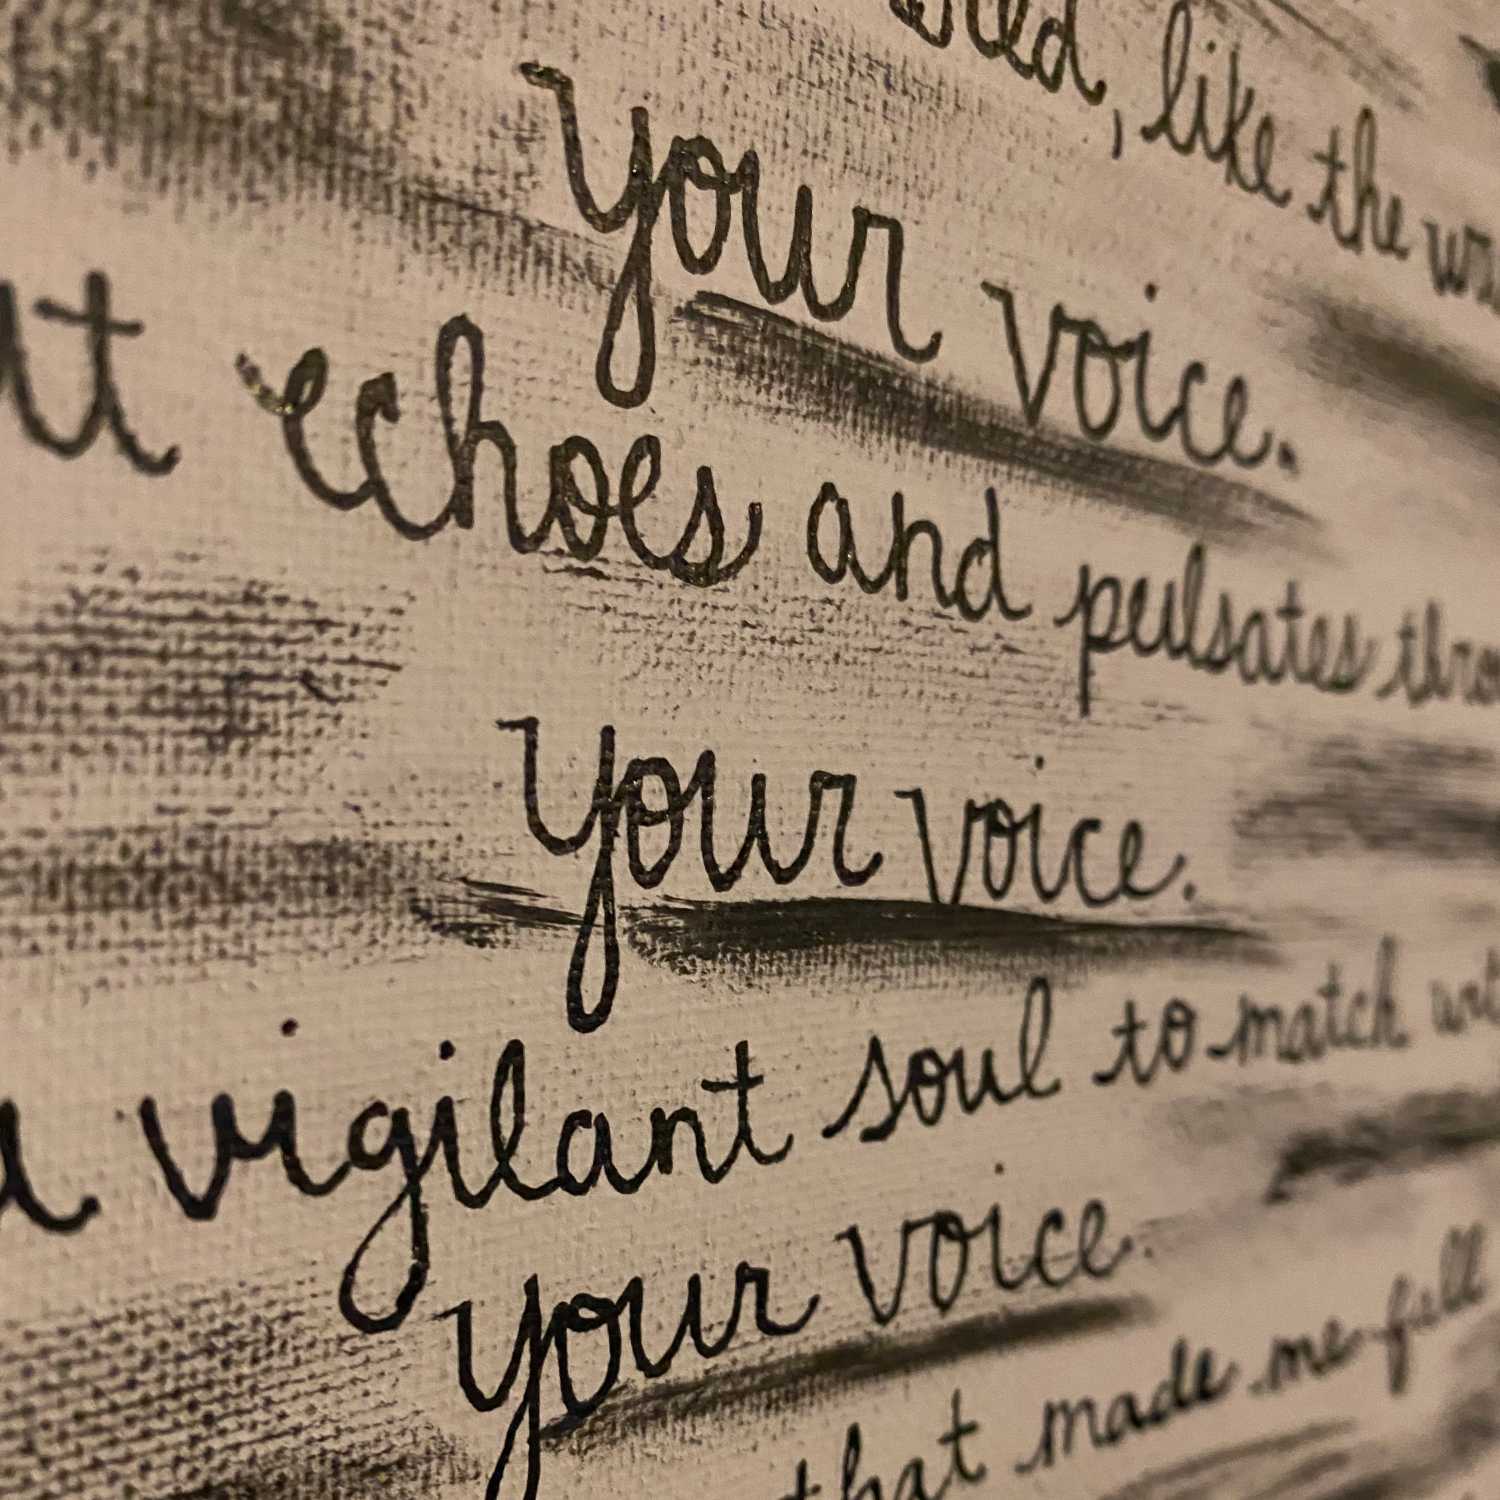 , like the
your voice.
echoes and pulsates
your voice.
vigilant soul to match
your voice.
that made me fall